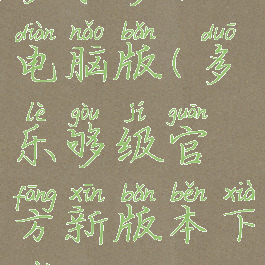 diàn nǎo bǎn duō
电脑版(多
lè gòu jí guān
乐够级官
fāng xīn bǎn běn xià
方新版本下